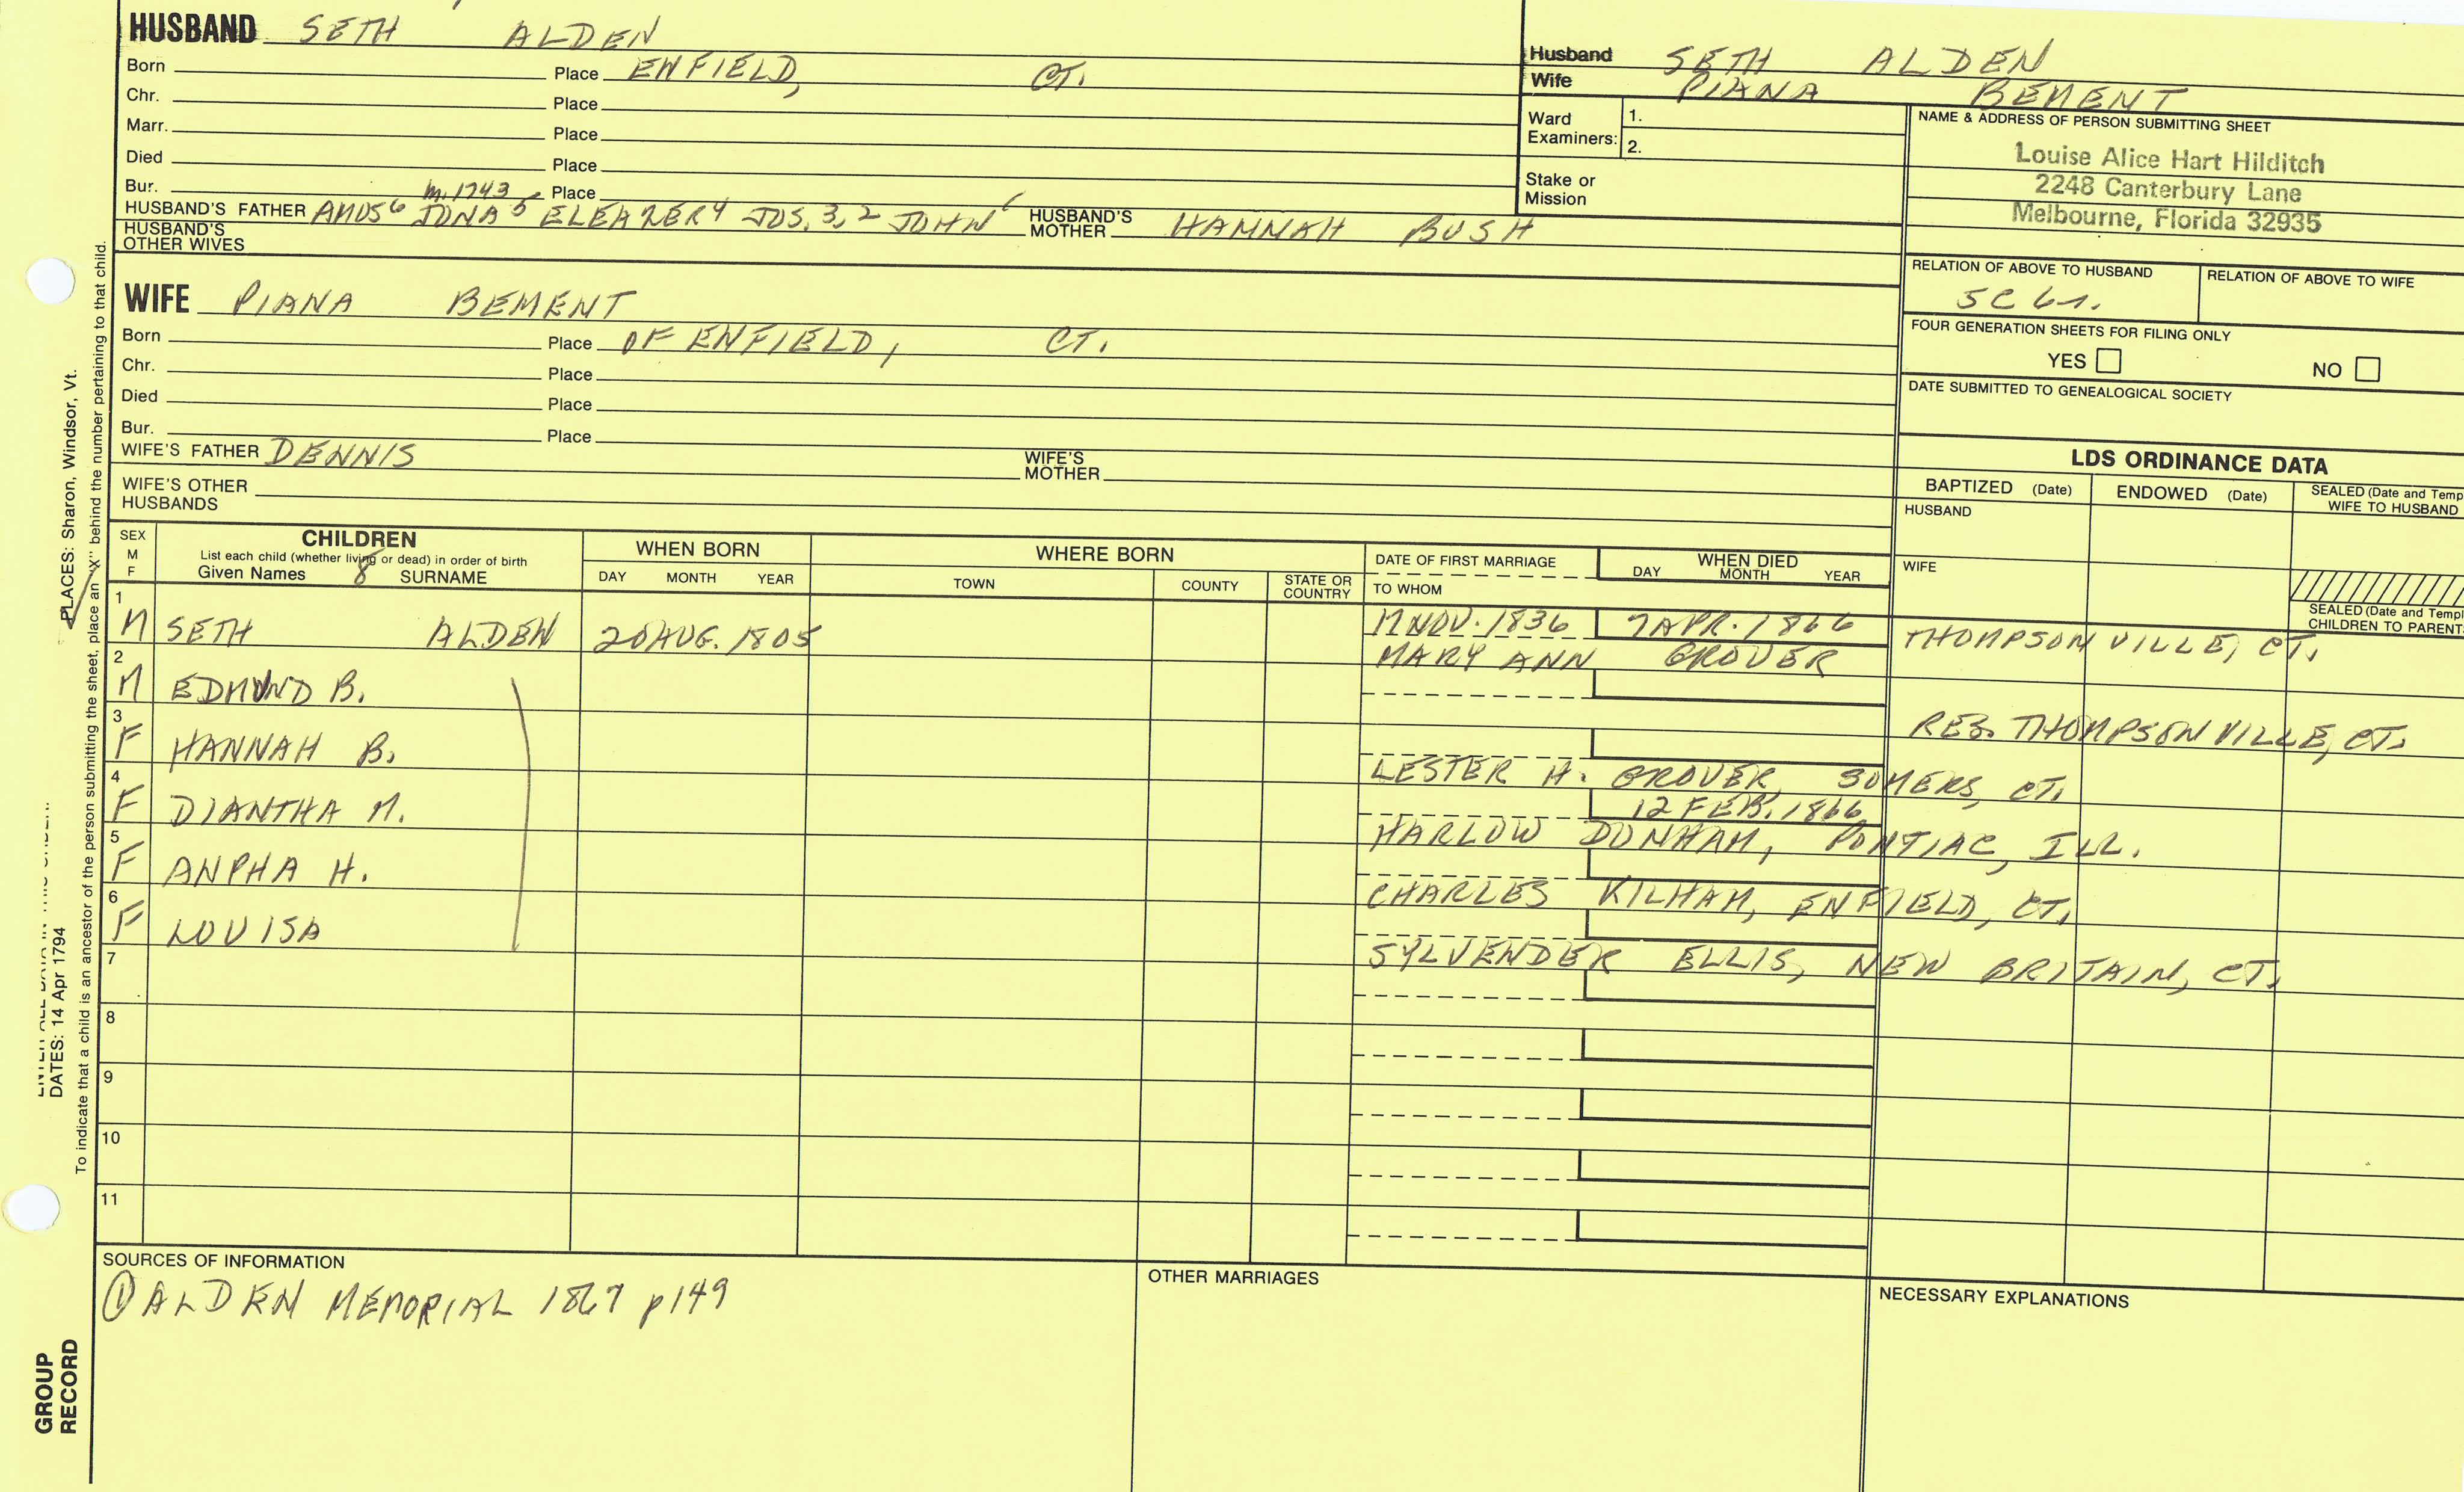 HUSBAND SETH ALDEN
Born Place ENFIELD, CT.
Chr. Place
Marr. Place
Died Place
Bur. m. 1743 Place
HUSBAND'S FATHER AMOS 6 JONA 5 ELEAZER 4 JOS. 3, 2 JOHN 1 HUSBAND'S MOTHER HANNAH BUSH
HUSBAND'S OTHER WIVES
Husband SETH ALDEN
Wife PIANA BEMENT
Ward Examiners: 1.
2.
Stake or Mission
NAME & ADDRESS OF PERSON SUBMITTING SHEET
Louise Alice Hart Hilditch
2248 Canterbury Lane
Melbourne, Florida 32935
RELATION OF ABOVE TO HUSBAND RELATION OF ABOVE TO WIFE
5C 6r.
FOUR GENERATION SHEETS FOR FILING ONLY
YES NO
DATE SUBMITTED TO GENEALOGICAL SOCIETY
WIFE PIANA BEMENT
Born Place OF ENFIELD, CT.
Chr. Place
Died Place
Bur. Place
WIFE'S FATHER DENNIS WIFE'S MOTHER
WIFE'S OTHER HUSBANDS
LDS ORDINANCE DATA
BAPTIZED (Date) ENDOWED (Date) SEALED (Date and Temp
WIFE TO HUSBAND
HUSBAND
WIFE
SEALED (Date and Templ
CHILDREN TO PARENT
SEX M F
CHILDREN
List each child (whether living or dead) in order of birth
Given Names 8 SURNAME
WHEN BORN
DAY MONTH YEAR
WHERE BORN
TOWN COUNTY STATE OR COUNTRY
DATE OF FIRST MARRIAGE
TO WHOM
WHEN DIED
DAY MONTH YEAR
1 M SETH ALDEN 20 AUG. 1805 17 NOV. 1836 7 APR. 1866 THOMPSONVILLE, CT.
MARY ANN GROVER
2 M EDMUND B.
RES. THOMPSONVILLE, CT.
3 F HANNAH B.
LESTER H. GROVER, SOMERS, CT.
4 F DIANTHA M. 12 FEB. 1866
HARLOW DONHAM, PONTIAC, ILL.
5 F ANPHA H.
CHARLES KILHAM, ENFIELD, CT.
6 F LOUISA
SYLVENDER ELLIS, NEW BRITAIN, CT.
7
8
9
10
11
SOURCES OF INFORMATION
① ALDEN MEMORIAL 1867 p149
OTHER MARRIAGES
NECESSARY EXPLANATIONS
PLACES: Sharon, Windsor, Vt.
DATES: 14 Apr 1794
To indicate that a child is an ancestor of the person submitting the sheet, place an "X" behind the number pertaining to that child.
GROUP
RECORD